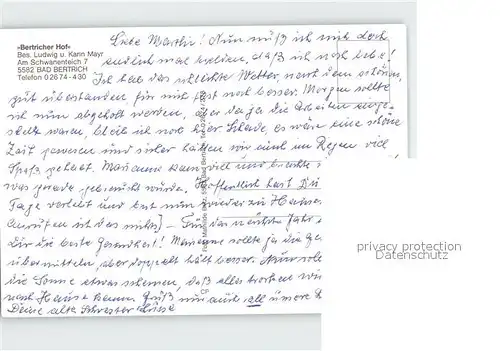 »Bertricher Hof«
Bes. Ludwig u. Karin Mayr
Am Schwanenteich 7
5582 BAD BERTRICH
Telefon 0 26 74 - 430
Liebe ! Nun muß ich mich doch
endlich mal melden, daß ich noch lebe!
Ich hab das schlechte Wetter, nach dem schönen,
gut überstanden, für mich fast noch besser. Morgen sollte
ich nun abgeholt werden, aber da ja die Arbeiten einge-
stellt waren, bleib ich noch hier. Schade, es wäre eine schöne
Zeit gewesen und sicher hätten wir auch im Regen viel
Spaß gehabt. Marianne kam und brachte
was gerade gebraucht wurde. Hoffentlich hast Du
Tage verlebt und bist nun wieder zu Hause
anrufen ist das – Für das nächste Jahr
Dir die beste Gesundheit! Marianne sollte ja die
übermitteln, aber doppelt hält besser. Nun
die Sonne etwas scheinen, daß alles trocken
nach Hause kann. Grüß mir auch all unsere
Deine alte Schwester
privacy protection
Datenschutz